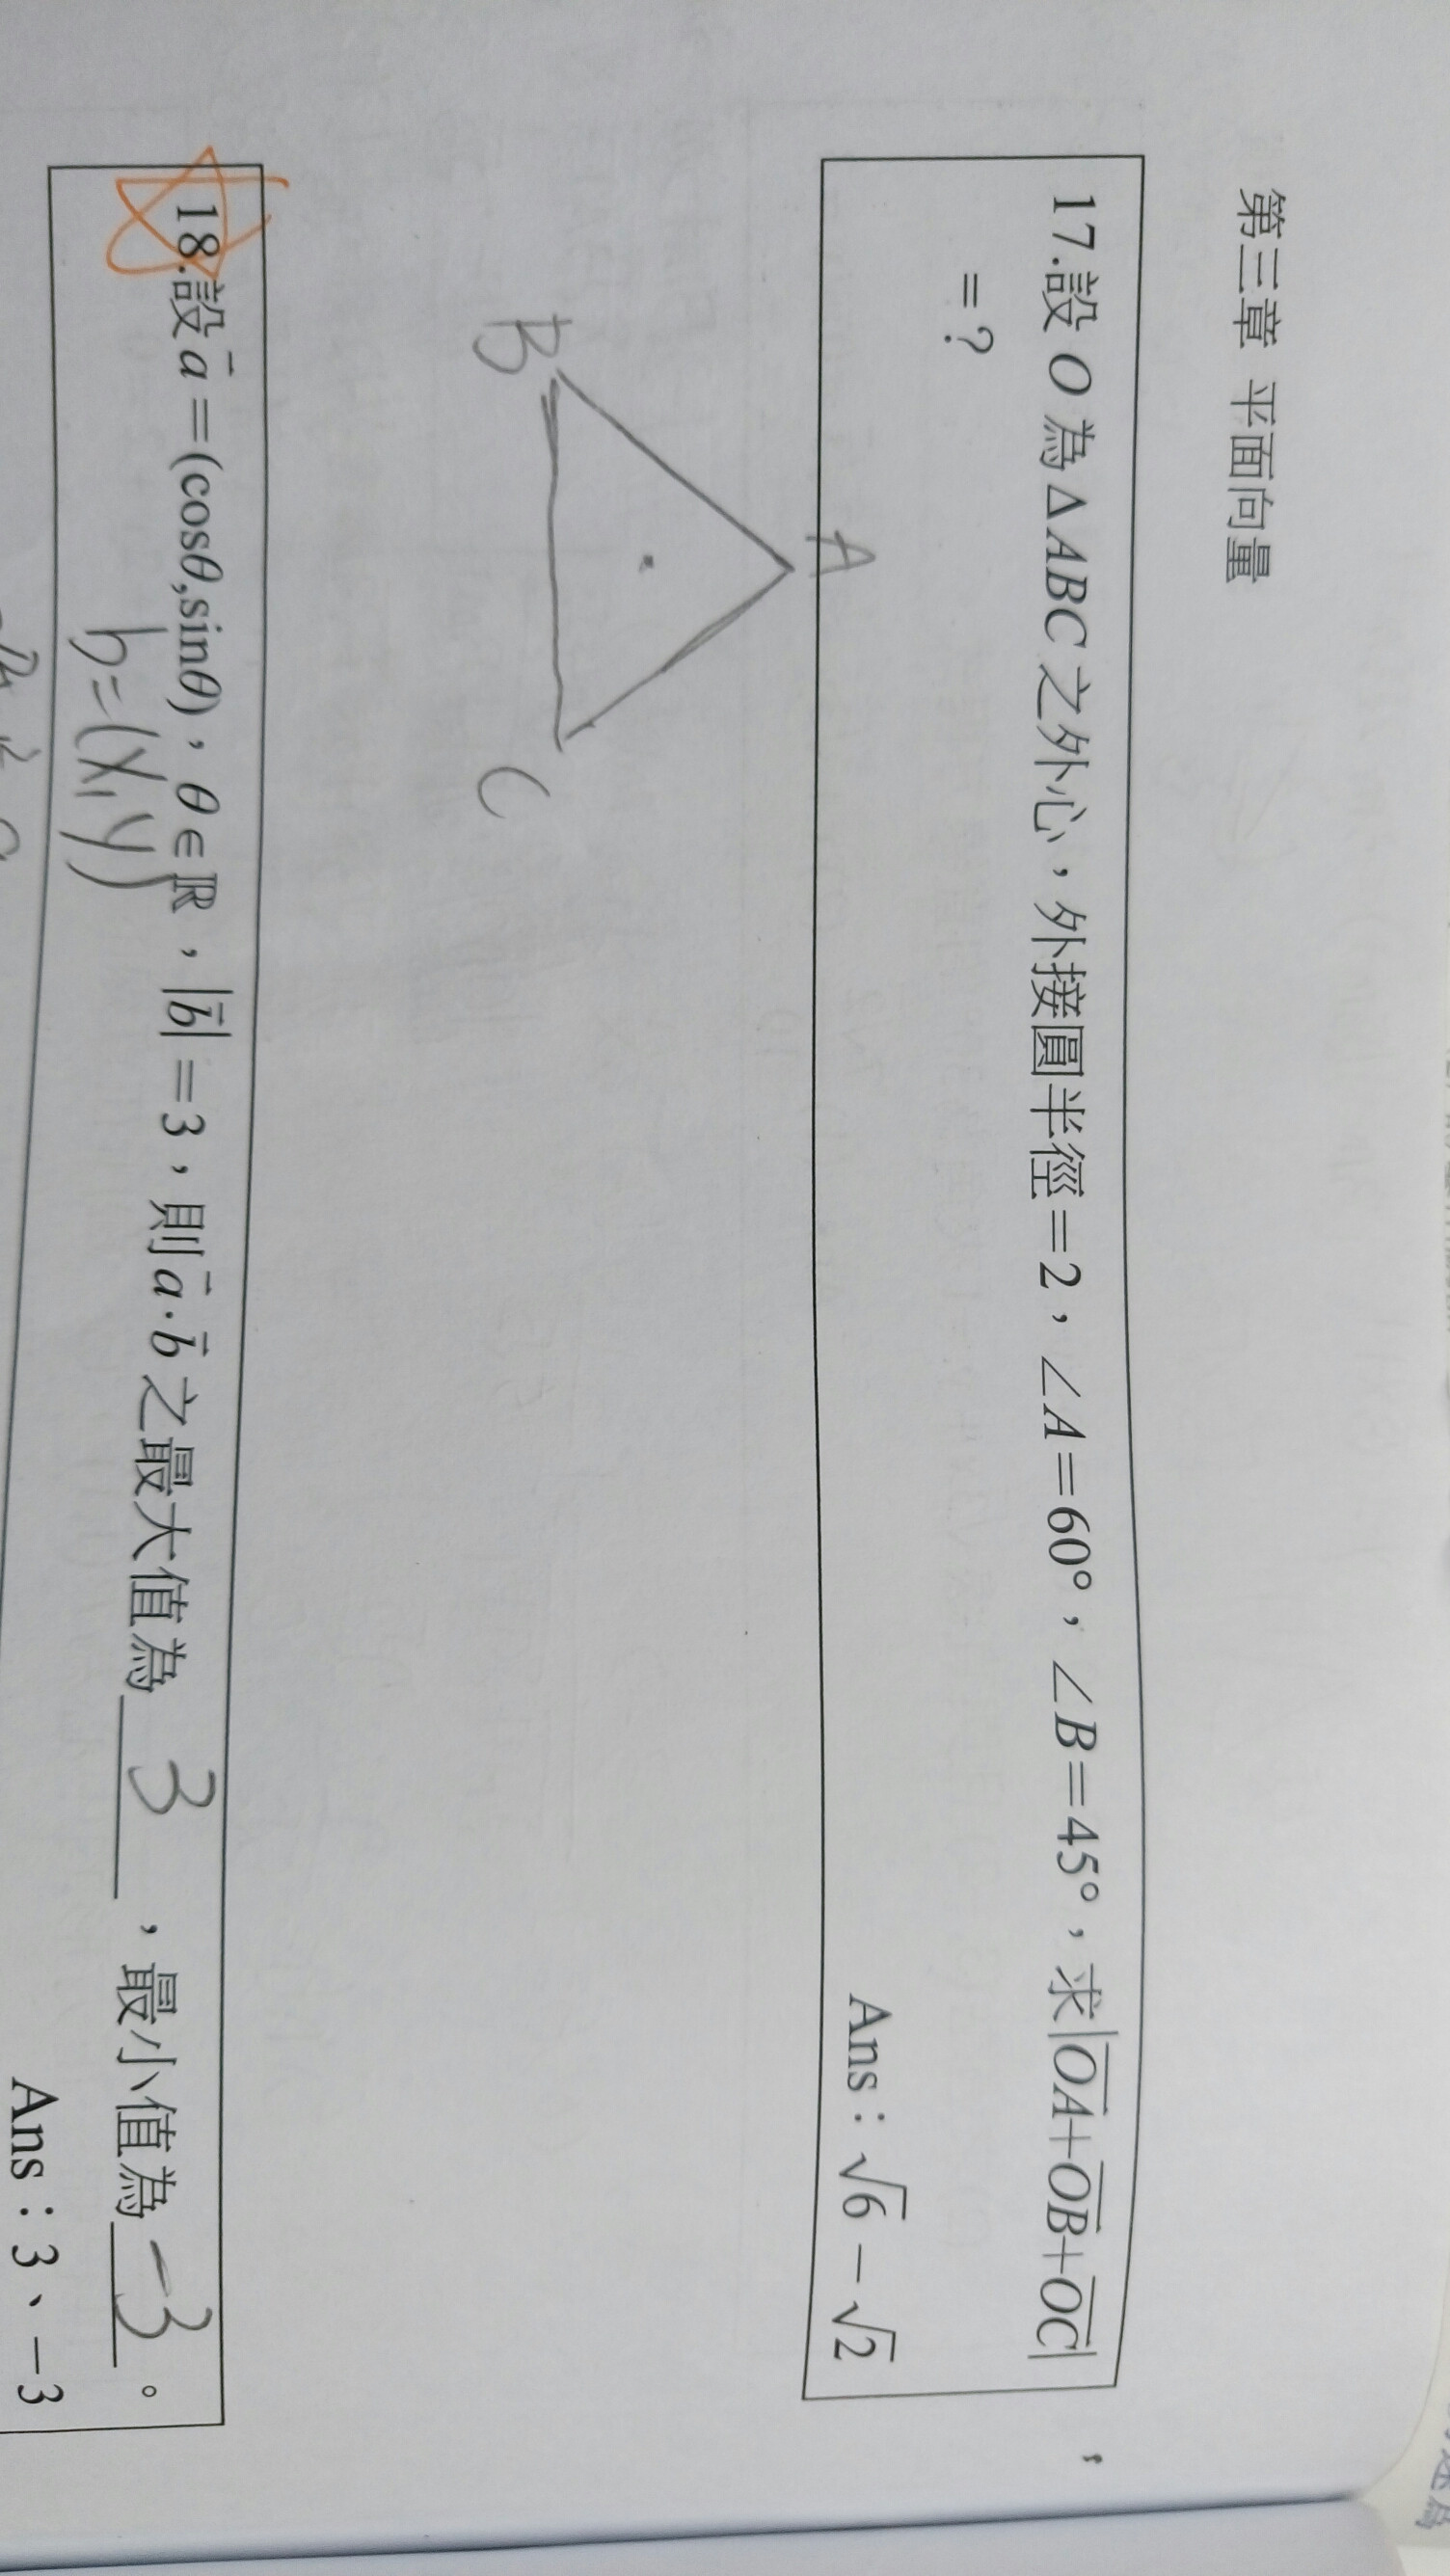 第三章 平面向量
17.設 O 為 ΔABC 之外心，外接圓半徑=2，∠A=60°，∠B=45°，求|OA+OB+OC|
=?
Ans：√6 − √2
A
B
C
18.設 a⃗ =(cosθ,sinθ)，θ∈ℝ，|b⃗|=3，則 a⃗·b⃗ 之最大值為 3 ，最小值為 −3 。
b=(x,y)
Ans：3、−3